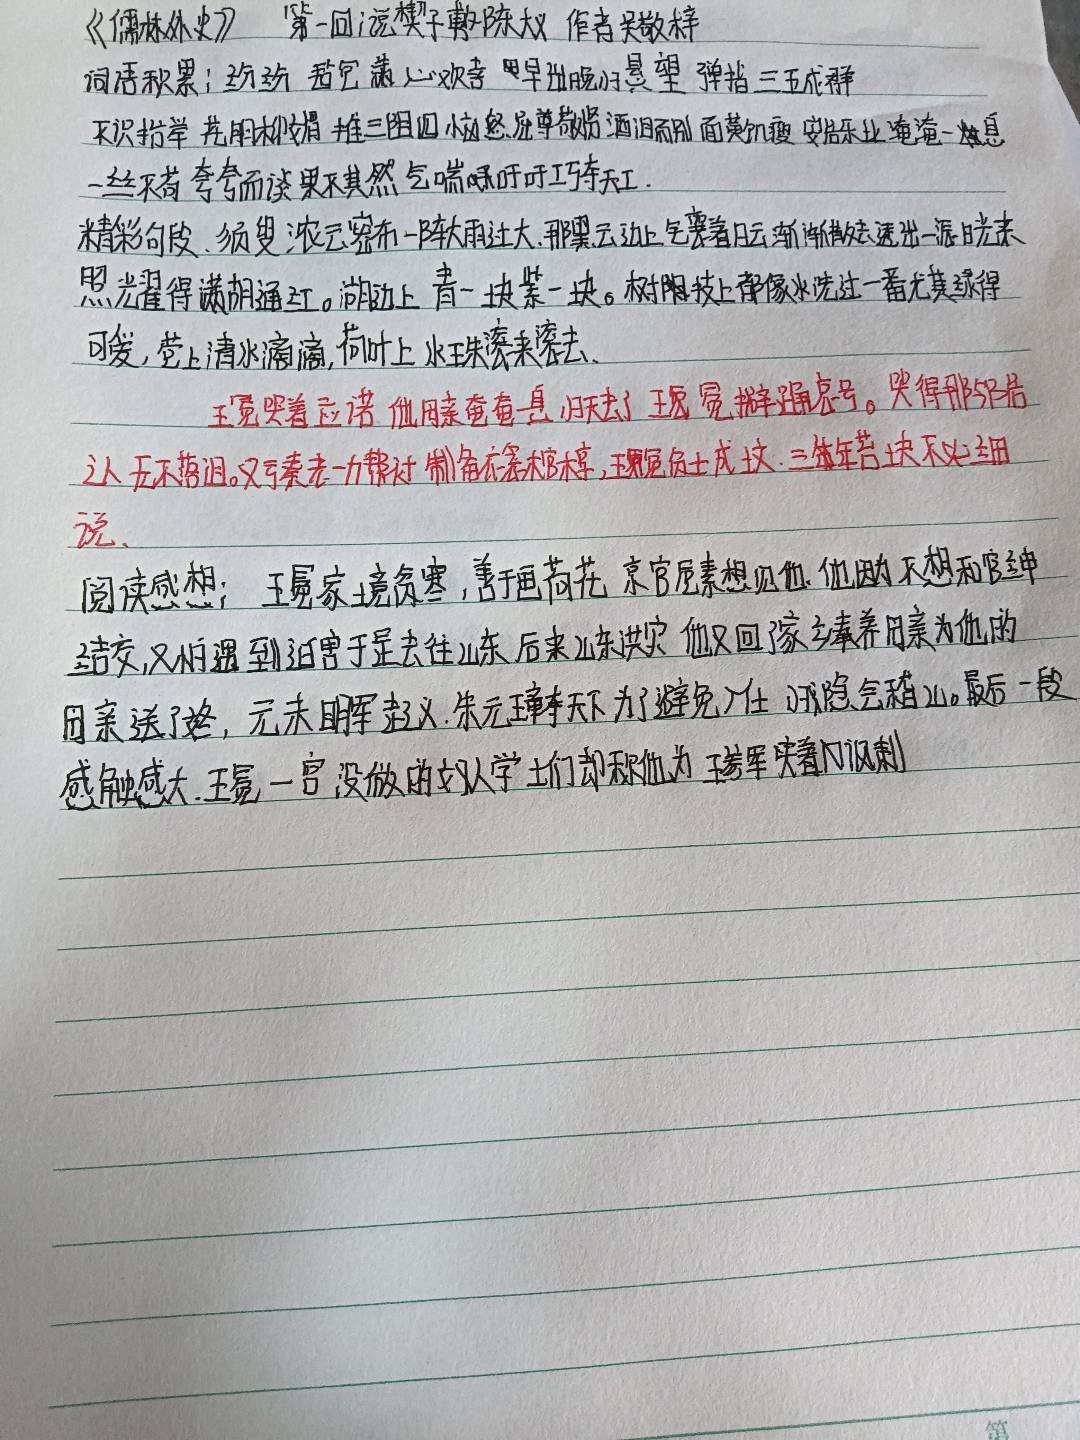 《儒林外史》 第一回 说楔子敷陈大义 作者吴敬梓
词语积累：纷纷 若 满心欢喜 早出晚归 悬望 弹指 三五成群
不识抬举 花明柳媚 推三阻四 恼怒 屈尊敬贤 洒泪而别 面黄肌瘦 安居乐业 奄奄一息
一丝不苟 夸夸而谈 果不其然 气喘嘘吁吁 巧夺天工.
精彩句段、须臾浓云密布一阵大雨过大、那黑云边上 着白云渐渐散去透出一派日光来
照光耀得满湖通红。湖边上 青一块紫一块。树 枝上都像水洗过一番尤其绿得
可爱, 上清水滴滴, 荷叶上水珠滚来滚去、
王冕哭着应诺 他母亲奄奄一息 归天去了 王冕 擗踊哀号。哭得那邻居
之人无不落泪。又亏秦老一力帮衬 制备衣衾棺椁, 王冕负土成坟. 三年苦块不必细
说、
阅读感想： 王冕家境贫寒, 善于画荷花 京官 素想见他. 他因为不想和官绅
结交, 又怕遇到迫害于是去往山东 后来山东洪灾 他又回了家乡奉养母亲 为他的
母亲送了终, 元末明军起义. 朱元璋夺天下 为了避免入仕 归隐会稽山。最后一段
感触感大. 王冕一官没做 文人学士们却称他为王参军 讽刺
第